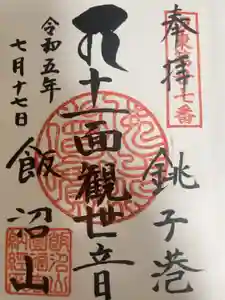 奉拝
坂東第廿七番
銚子港
十一面観世音
飯沼山
令和五年
七月十七日
飯沼山
圓福寺
納経